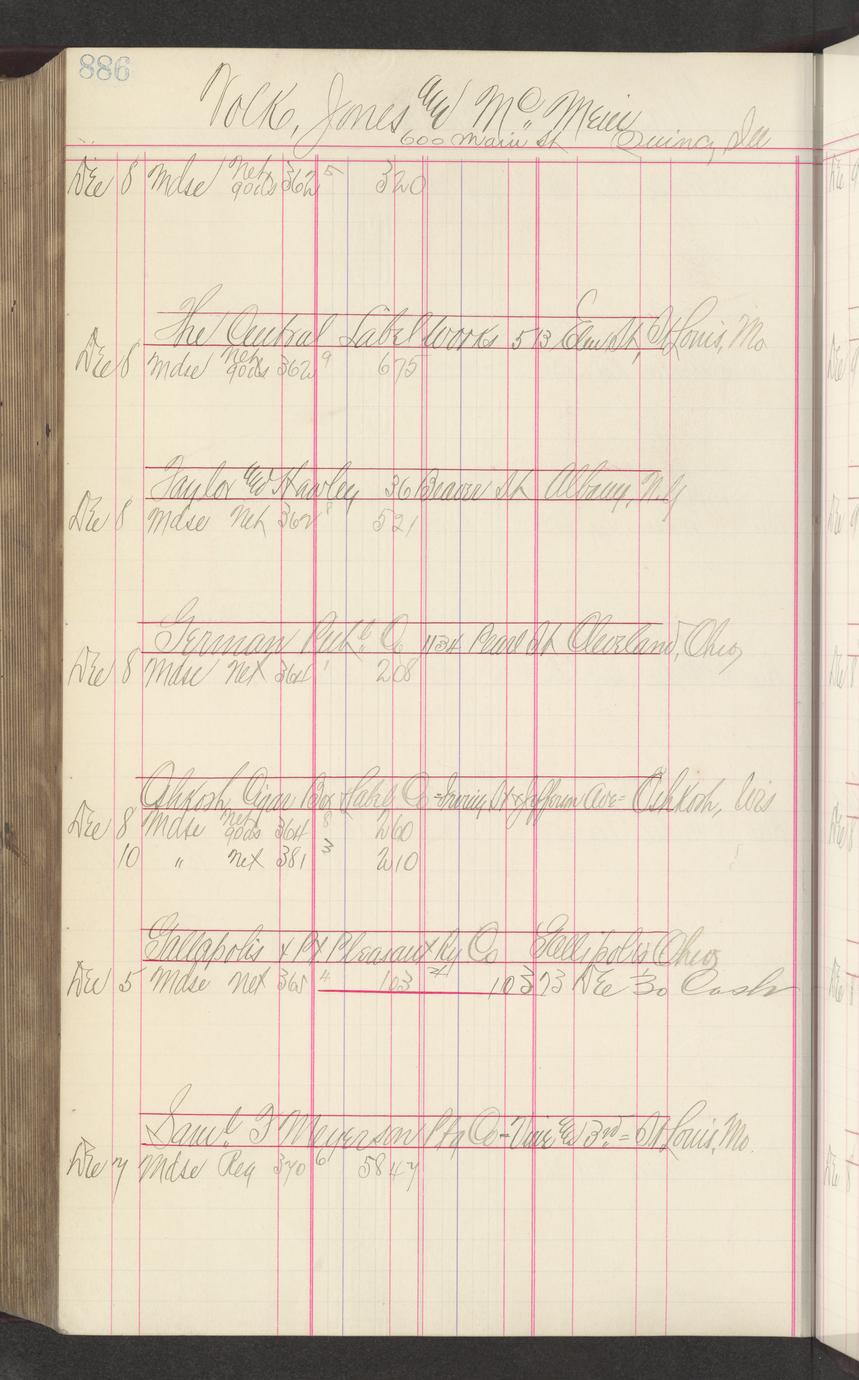 886
Volk, Jones and Mc Mein
600 Main St Quincy, Ill
Dec 8 Mdse Net goods 362 5 320
The Central Label Works 513 Elm St, St Louis, Mo
Dec 8 Mdse Net goods 362 9 675
Taylor and Hawley 36 Beaver St Albany, N.Y
Dec 8 Mdse Net 362 8 521
German Pub. Co 1134 Pearl St Cleveland, Ohio
Dec 8 Mdse Net 364 1 208
Oshkosh Cigar Box & Label Co = Irving St & Jefferson Ave = Oshkosh, Wis
Dec 8 Mdse Net goods 364 8 260
10 " Net 381 3 210
Gallapolis & Pt Pleasant Ry Co Gallipolis Ohio
Dec 5 Mdse Net 365 4 103 103 73 Dec 30 Cash
Saml F Meyerson Ptg Co = Vine and 3rd = St Louis, Mo.
Dec 7 Mdse Reg 370 6 5847